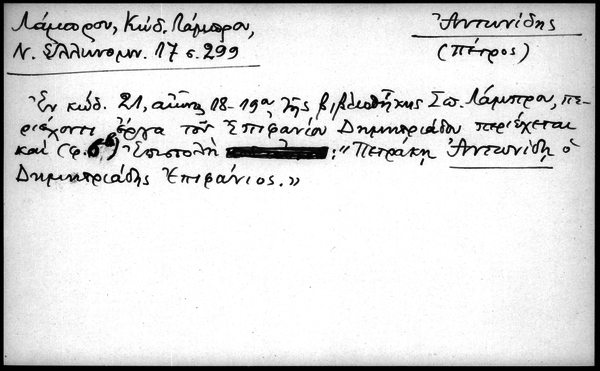 Λάμπρου, Κώδ. Λάμπρου,
Ν. Ἑλληνομν. 17 σ. 299
Ἀντωνίδης
(Πέτρος)
Ἐν κώδ. 21, αἰῶνος 18-19ου τῆς βιβλιοθήκης Σπ. Λάμπρου, πε-
ριέχοντι ἔργα τοῦ Ἐπιφανίου Δημητριάδου περιέχεται
καὶ (φ. 69) Ἐπιστολὴ : "Πετράκῃ Ἀντωνίδῃ ὁ
Δημητριάδης Ἐπιφάνιος."